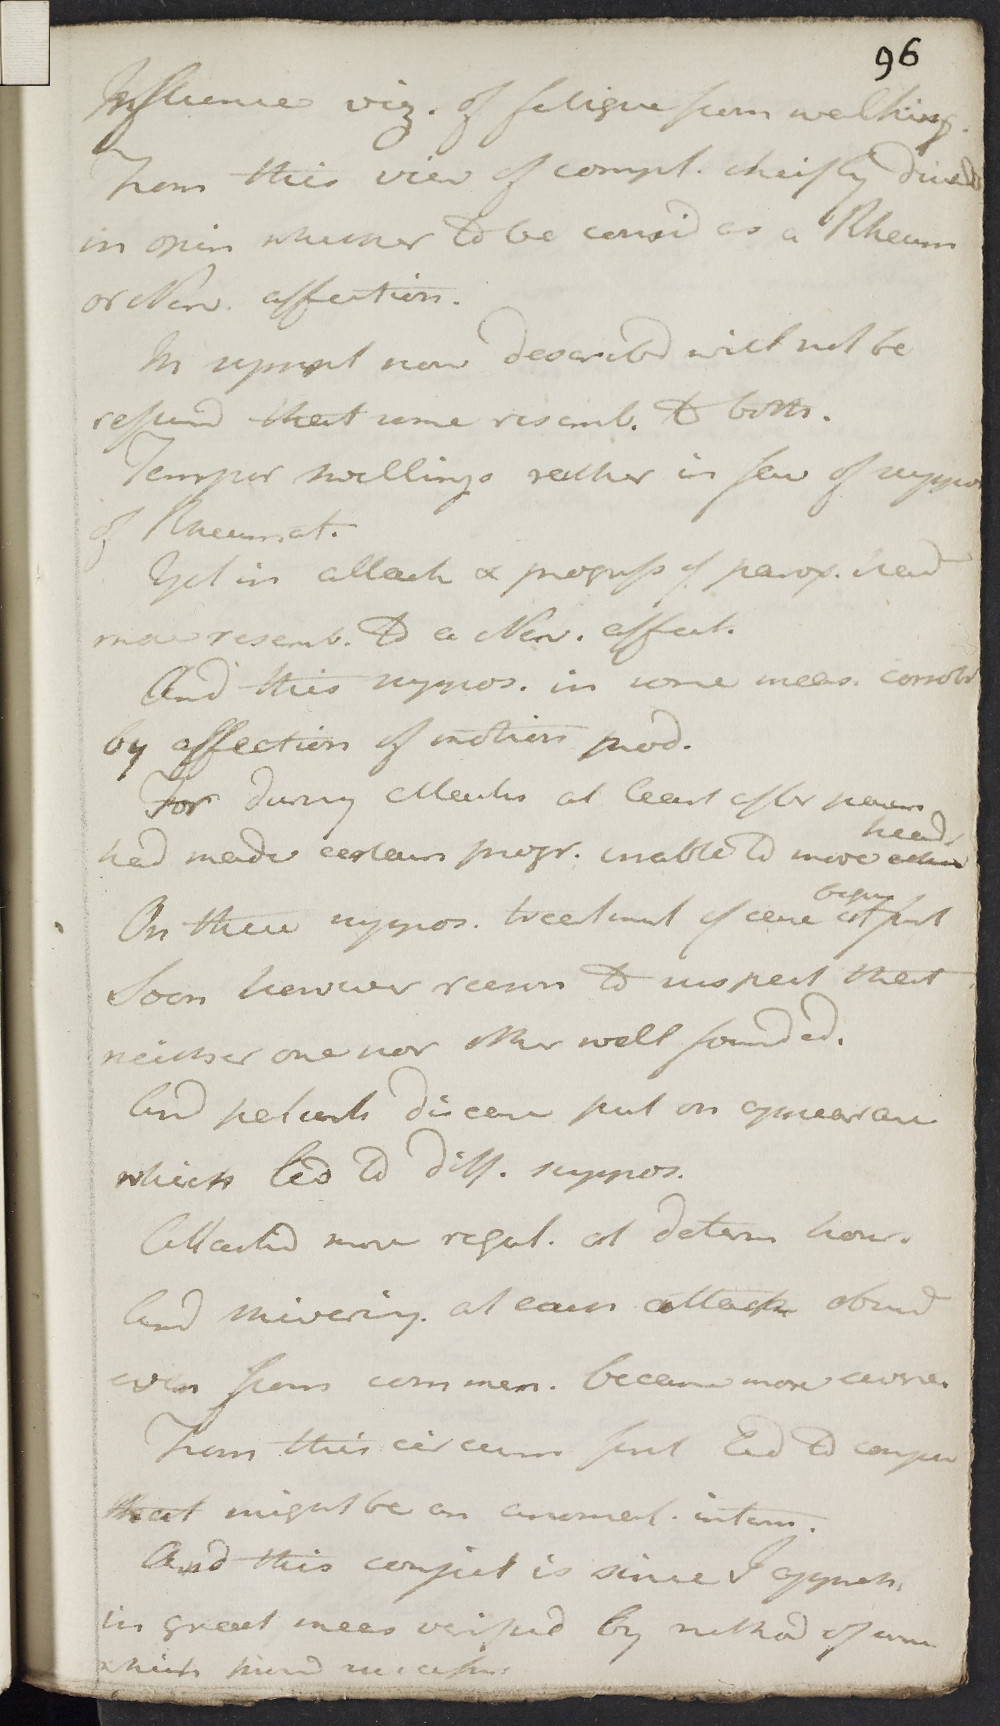 96
Influence viz. of fatigue from walking.
From this view of compl. cheifly divided
in opin whether to be consid as a Rheum
or Nerv. affection.
In sympt now described will not be
refused that some resemb. to both.
Tempor swellings rather in fav of suppos
of Rheumat.
Yet in attack & progress of parox. head
more resemb. to a Nerv. affect.
And this suppos. in some meas. corrob
by affection of motion prod.
For during attacks at least after pain
head
had made certain progr. unable to move
begun
On these suppos. treatment of case at first
Soon however reason to suspect that
neither one nor other well founded.
And patients disease put on appearance
which led to diff. suppos.
Attacked more regul. at determ hour.
And shivering. at each attack obsved
even from commen. became more severe.
From this circum first led to conject
that might be an anomal. interm.
And this conject is since I appreh.
in great meas verified by method of cure
which prov'd successf.